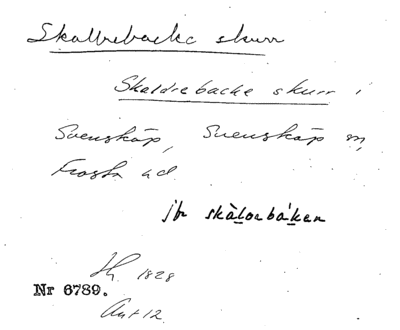 Skallrebacke skurr
Skaldrebacke skurr i
Svensköp, Svensköp sn,
Frosta hd.
jfr skàlorbá'ken
Sk. 1828
Nr 6789.
Avs 12.